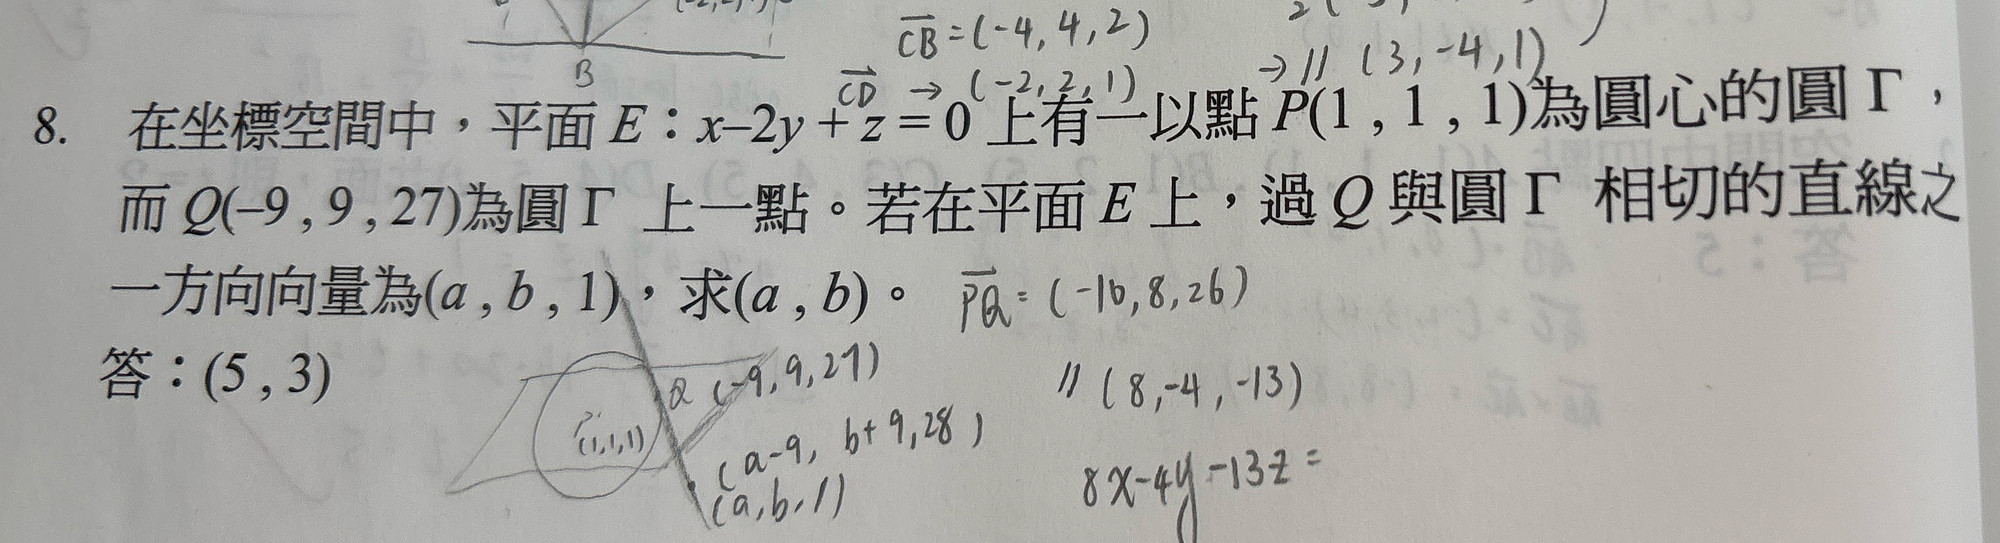 B
CB=(-4,4,2)
CD → (-2,2,1)
→ // (3,-4,1)
8. 在坐標空間中，平面 E：x–2y + z = 0 上有一以點 P(1 , 1 , 1)為圓心的圓 Γ，
而 Q(–9 , 9 , 27)為圓 Γ 上一點。若在平面 E 上，過 Q 與圓 Γ 相切的直線之
一方向向量為(a , b , 1)，求(a , b)。 PQ = (-16,8,26)
答：(5 , 3)
Q (-9,9,27)
// (8,-4,-13)
P
(1,1,1)
(a-9, b+9,28)
(a,b,1)
8x-4y-13z=